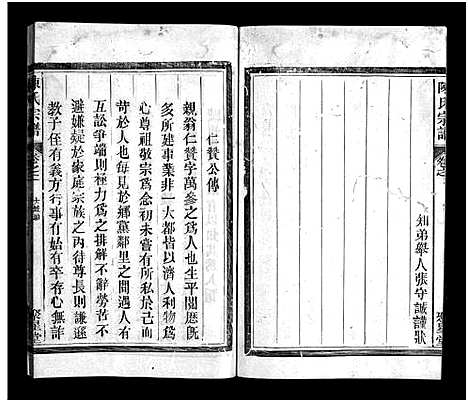 陳氏宗譜
卷之一
如弟舉人張守誠謹狀
聚星堂
仁贊公傳
親翁仁贊字萬參之爲人也生平閱歷旣
多所建事業非一大都皆以濟人利物爲
心尊祖敬宗爲念初未嘗有所私於己有
苛於人也每見於鄉黨鄰里之間遇人有
互訟爭端則爲之排解不辭勞苦不
避嫌疑於家庭宗族之內待尊長則謙遜
教子侄有義方行事有始有卒存心無詐
陳氏宗譜
聚星堂